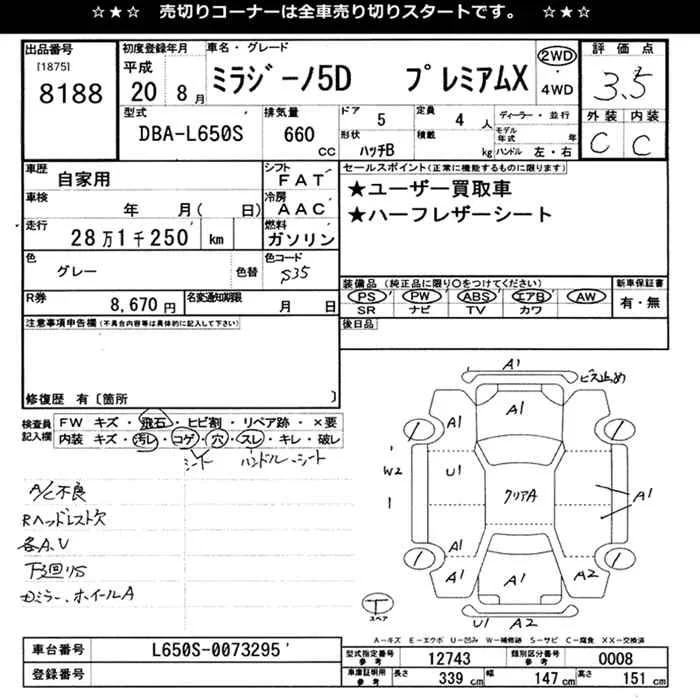 ☆★☆ 売切りコーナーは全車売り切りスタートです。 ☆★☆
出品番号 初度登録年月 車名・グレード 評価点
[1875]
8188
平成 20 8月
ミラジーノ5D プレミアムX
2WD
4WD
3.5
外装 内装
C C
型式 排気量 ドア 定員 ディーラー・並行
DBA-L650S 660 CC 5 4 人
モデル年式 年
形状 積載
ハッチB kg ハンドル 左・右
車歴 シフト セールスポイント(正常に機能するものに限ります)
自家用 FAT
★ユーザー買取車
★ハーフレザーシート
車検 冷房
年 月( 日) AAC
走行 燃料
28万1千250 km ガソリン
色 色コード
グレー 色替 S35
装備品(純正品に限り○をつけてください) 新車保証書
PS PW ABS エアB AW 有・無
SR ナビ TV カワ
R券 名変通知期限
8,670円 月 日
後日品
注意事項申告欄(不具合内容等は具体的に記入して下さい)
修復歴 有〔箇所 〕
検査員記入欄
FW キズ・飛石・ヒビ割・リペア跡・×要
内装 キズ・汚レ・コゲ・穴・スレ・キレ・破レ
シート ハンドル・シート
A/C不良
Rヘッドレスト欠
各A,U
下廻りS
Dミラー、ホイールA
A1
ビス止め
A1
A1
W2
U1
クリアA
A1
A1
A1
A1
A2
U1 A2
スペア
A−キズ E−エクボ U−凹み W−補修跡 S−サビ C−腐食 XX−交換済
車台番号 L650S-0073295
登録番号
型式指定番号 参考 12743 類別区分番号 参考 0008
車庫証明用 参考 長さ 339 cm 幅 147 cm 高さ 151 cm